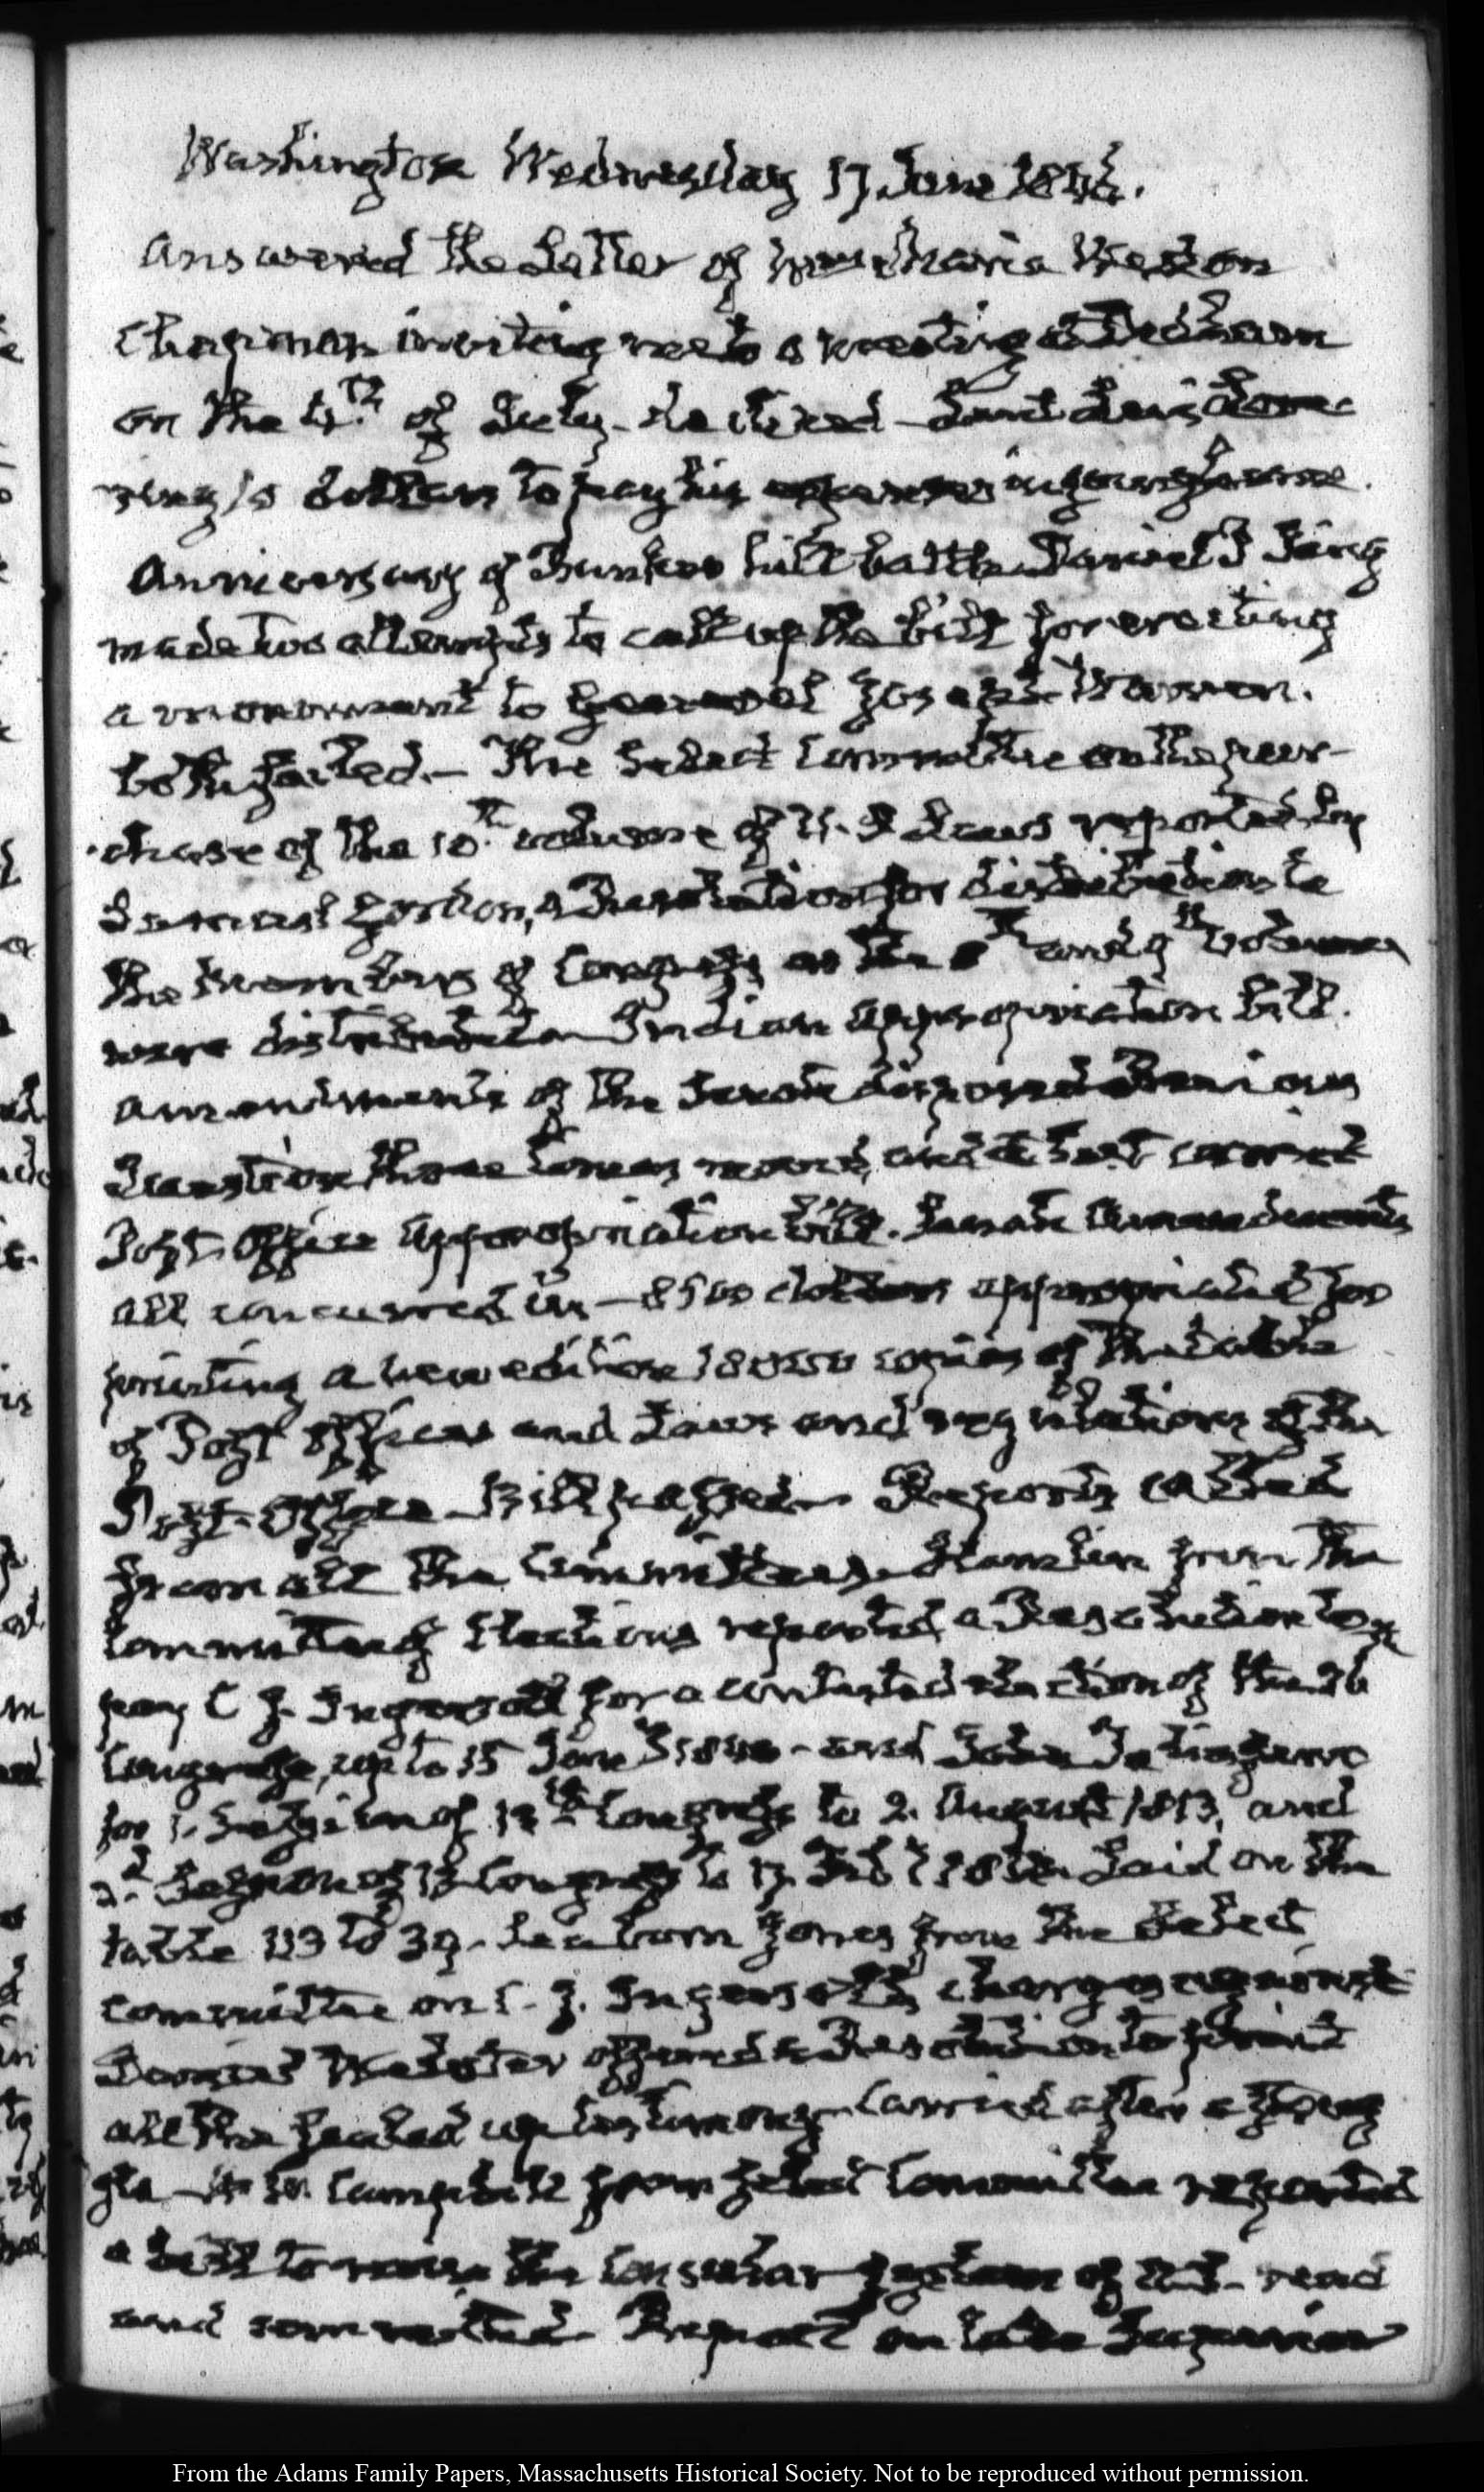 Washington Wednesday 17 June 1846.
Answered the Letter of Maria Weston
Chapman inviting me to a meeting at Dedham
on the 4th of July. declined — Sent
dollars to pay his
Anniversary of Bunker hill battle Daniel P King
made two attempts to call up the bill for erecting
a monument to General Joseph Warren.
both failed.— The Select Committee on the pur-
chase of the 10th volume of U.S. Laws reported by
Samuel Gordon, a Resolution for distribution to
the members of Congress as the 8th and 9th volumes
were distributed. Indian appropriation bill.
amendments of the Senate disposed Previous
Question three times moved, and at last carried
Post-Office appropriation bill. Senate Amendments
all concurred in — 8500 dollars appropriated for
printing a new edition 18000 copies of the table
of Post offices and Laws and regulations of the
Post-Office — Bill passed — Reports called
from all the Committees. Hamlin from the
Committee of Elections reported a Resolution to
pay C J. Ingersoll for a contested election of the 26
Congress, up to 15 June 1840 — and John Taliaferro
for 1. Session of 13th Congress to 2. August 1813, and
2d Session of 13 Congress to 17. Feby Laid on the
table 113 to 39. Seaborn Jones from the Select
Committee on C. J. Ingersoll's charges against
Daniel Webster offered a Resolution to print
all the sealed up testimony — Carried after a strug
gle — W W Campbell from Select Committee reported
a bill to revise the Consular system of U.S. read
and committed. Report on Lake Superior
From the Adams Family Papers, Massachusetts Historical Society. Not to be reproduced without permission.